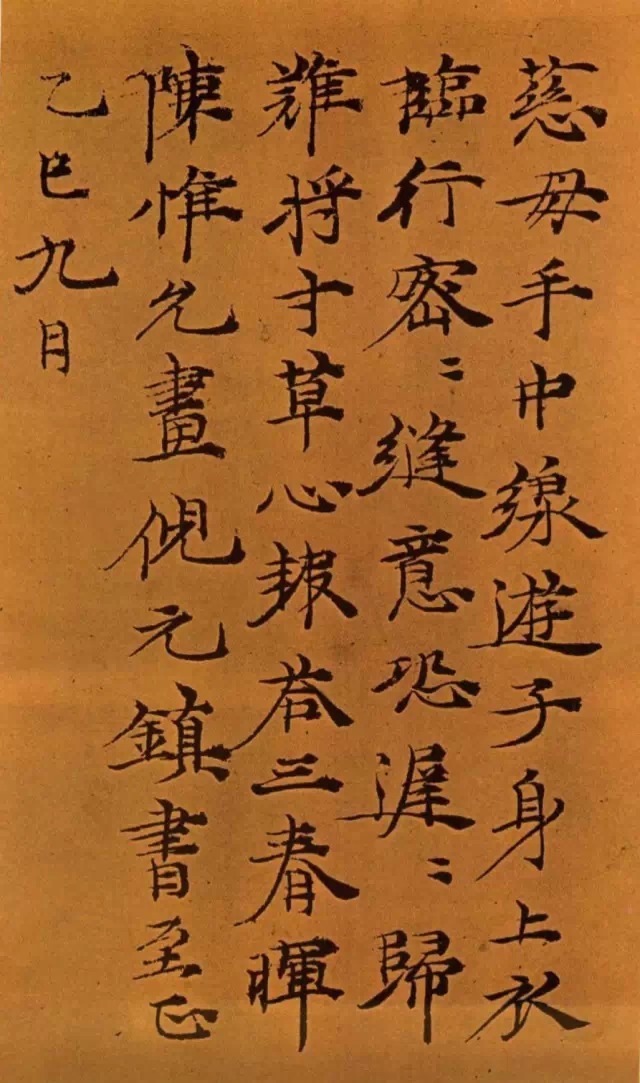 慈母手中線遊子身上衣
臨行密〻縫意恐遲〻歸
難將寸草心報荅三春暉
陳惟允畫倪元鎮書至正
乙巳九月